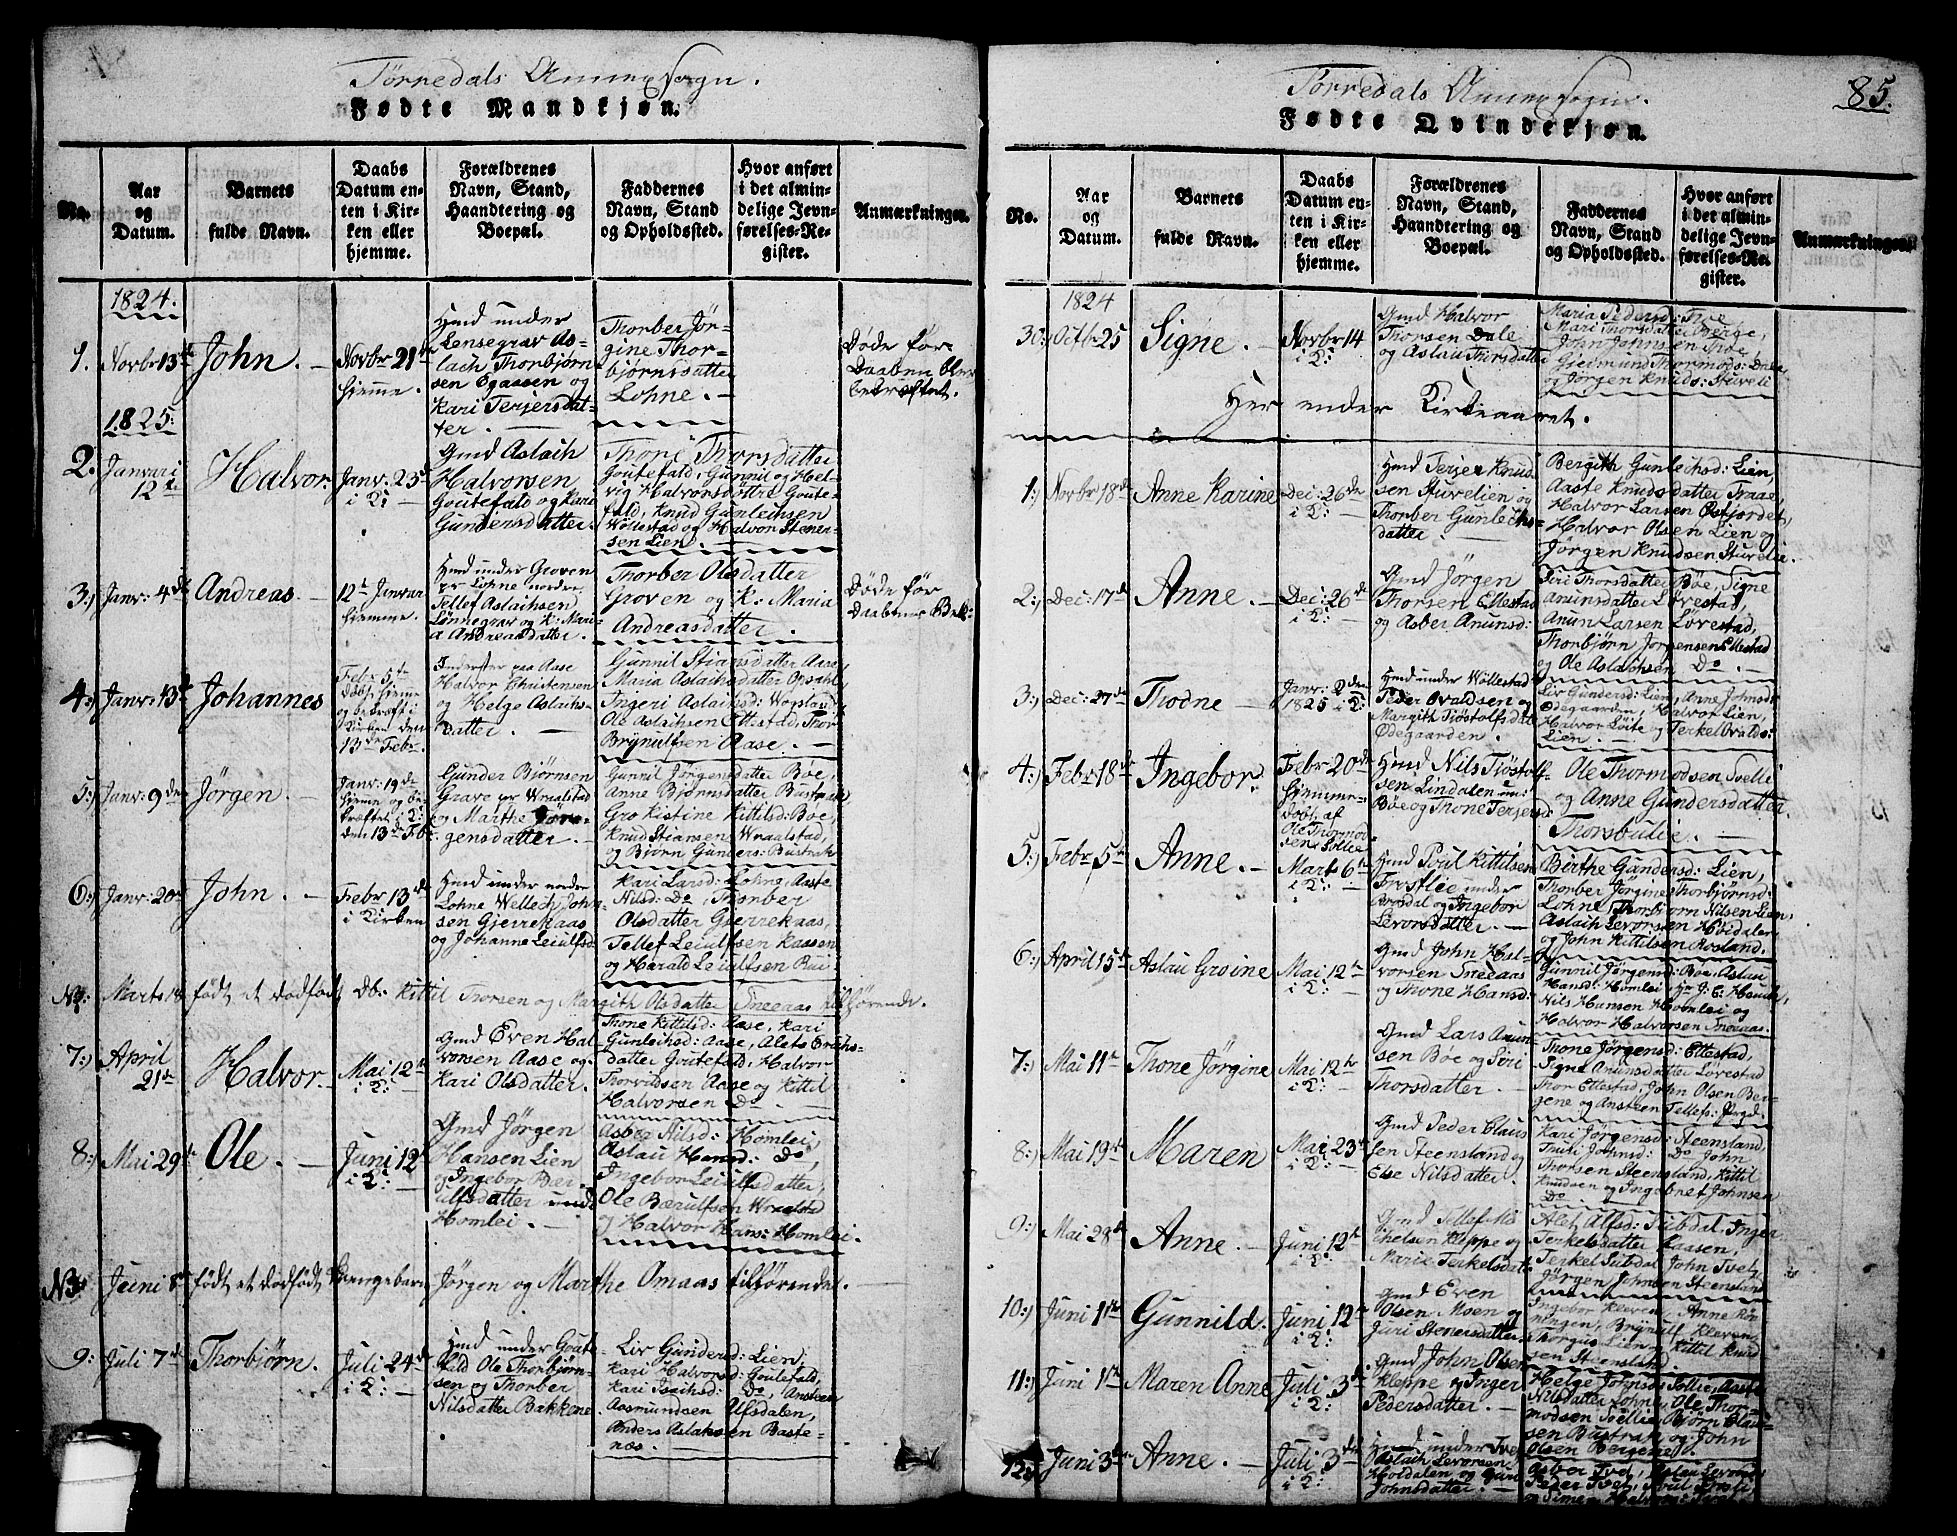 Tørredals Annex Sogn.
Fødte Mandkjøn.
No.
Aar
og
Datum.
Barnets
fulde Navn.
Daabs
Datum en-
ten i Kir-
ken eller
hjemme.
Forældrenes
Navn, Stand,
Haandtering og
Boepæl.
Faddernes
Navn, Stand
og Opholdssted.
Hvor anført
i det almin-
delige Jevn-
førelses-Re-
gister.
Anmærkninger.
1824.
1.
Novbr 13de
John.
Novbr 21de
hjemme.
Hmd under
Lensegrav As-
lach Thorbjørn
sen Egaasen og
Kari Terjersdat-
ter.
Thorber Jør-
gine Thor-
bjørnsdatter
Lohne.
Døde før
Daaben blev
bekræftet.
1825.
2.
Januari
12te
Halvor.
Janv. 23de
i K:
Gmd Aslach
Halvorsen
Goutefald og Kari
Gundersdatter.
Thone Thorsdatter
Goutefald, Gunnil og Hel-
vig Halvorsdøttre Goute-
fald, Knud Gunleihsen
Wøllestad og Halvor Stener-
sen Lien.
3.)
Janv: 4de
Andreas.
12te Januar
hjemme.
Hmd under Groven
pr Lohne nordre
Tellef Aslachsen
Lønnegrav og K: Mari-
a Andreasdatter.
Thorber Olsdatter
Groven og K: Maria
Andreasdatter.
Døde før
Daabens Bek:
4.)
Janv: 13de
Johannes
Febr 5te
døbt hjemme
og bekræft i
Kirken den
13de Febr.
Inderster paa Aase
Halvor Christensen
og Helge Aslachs-
datter.
Gunnil Stiansdatter Aase,
Maria Aslachsdatter Opsahl,
Ingeri Aslachsd: Wopsland,
Ole Aslachsen Ettestad, Thor
Brynulfsen Aase.
5.)
Janv: 9de
Jørgen.
Janv: 19de
hjemme og be-
kræftet i K:
den 13de Feb:
Gunder Bjørnsen
Grave pr Wraalstad
og Marthe Jørn-
gensdatter.
Gunnil Jørgensdatter Bøe,
Anne Bjørnsdatter Bustrak,
Gro Kistine Kittilsd: Bøe,
Knud Stiansen Wraalstad,
og Bjørn Gunders: Bustrak
6.)
Janv: 20de
John.
Febr 13de
i Kirken
Hmd under nordre
Lohne Wellech John-
sen Gjerrekaas
og Johanne Leiulfsd.
Kari Larsd: Lohne, Aaste
Nilsd: Do, Thorber
Olsdatter Gjerrekaas,
Tellef Leiulfsen Kaasen
og Harald Leiulfsen Rui
NB:
Marts 18
født et dødfødt Db. Kittil Thorsen og Margith Olsdatter Sneeaas tilhørende.
7.)
April
21de
Halvor.
Mai 12te
i K:
Gmd Even Hal-
vorsen Aase og
Kari Olsdatter.
Thone Kittilsd: Aase, Kari
Gunleihsd: Aase, Alets Erichs-
datter Goutefald, Halvor
Thorvildsen Aase og Kittil
Halvorsen Do
8.)
Mai 29de
Ole.
Juni 12te
i K:
Gmd Jørgen
Hansen Lien
og Ingebor Bær-
ulfsdatter und:
Homlei.
Asber Nilsd: Homlei,
Aslau Hansd: Do,
Ingebor Leiulfsdatter,
Ole Bærulfsen Wraalstad
og Halvor Hans: Homlei.
NB
Juni 8de
født et dødfødt Drengebarn Jørgen og Marthe Omaas tilhørende.
9.
Juli 7de
Thorbjørn.
Juli 24de
i K:
Hmd under Goute-
fald Ole Thorbjørn-
sen og Thorber
Nilsdatter Bakkene
Liv Gundersd: Lien,
Kari Halvorsd: Goutefald,
Kari Isachsd: Do, Ansteen
Aasmundsen Ulfsdalen,
Anders Aslaksen Baste-
næs.
Tørredals Annex Sogn.
85.
Fødte Qvindekjøn.
No.
Aar
og
Datum.
Barnets
fulde Navn.
Daabs
Datum en-
ten i Kir-
ken eller
hjemme.
Forældrenes
Navn, Stand,
Haandtering og
Boepæl.
Faddernes
Navn, Stand
og Opholdssted.
Hvor anført
i det almin-
delige Jevn-
førelses-Re-
gister.
Anmærkninger.
1824
30.)
Octbr 25
Signe.
Novbr 14
i K:
Gmd Halvor
Thorsen Dale
og Aslau Thorsdatter
Maria Pedersd: Tree
Mari Thorsdatter Berge,
John Johnsen Tree
Gjermund Thormods: Dale
og Jørgen Knuds: Stureli
Her ender Kirkeaaret.
1.)
Novbr 18de
Anne Karine
Dec: 26de
i K:
Hmd Terjer Knud-
sen Sturelien og
Thorber Gunlechs-
datter.
Bergith Gunlechsd: Lien,
Aaste Knudsdatter Traae,
Halvor Larsen Osfjordet,
Halvor Olsen Lien og
Jørgen Knudsen Sturelie.
2.)
Dec: 17de
Anne.
Dec: 26de
i K:
Gmd Jørgen
Thorsen Ettestad
og Asber Anunsd:
Siri Thorsdatter Bøe, Signe
Anunsdatter Lørestad,
Anun Larsen Lørestad,
Thorbjørn Jørgensen Ettestad
og Ole Aslachsen Do.
3.)
Dec: 27de
Thodne
Janv: 2den
1825 i K:
Hmd under Wøllestad
Peder Ovaldsen og
Margith Tjøstolfsdat
Ødegaarden.
Liv Gundersd: Lien, Anne Johnsd:
Ødegaarden, Halvor Lien,
Halvor Løite og Terkel Ovalds:
Lien.
4.)
Febr 18de
Ingebor.
Febr 20de
hjemme-
døbt af
Ole Thormod-
sen Sollie
Hmd Nils Tjøstolf-
sen Lindalen un:
Bøe og Thone Terjersd
Ole Thormodsen Sollie
og Anne Gundersdatter
Thorsbulie.
5.)
Febr 5te
Anne.
Marts 6te
i K:
Hmd Poul Kittilsen
under
og Ingebor
Levorsdatter.
Birthe Gundersd: Lien,
Thorber Jørgine Thorbjørnsd:
Lohne, Thorbjørn Nilsen Lien,
Aslach Levorsen Høidalen
og John Kittilsen Rosland.
6.)
April 15te
Aslau Groine
Mai 12te
i K:
Gmd John Hal-
vorsen Sneeaas
og Thone Hansd:
Gunnil Jørgensd: Bøe, Aslau
Hansd: Homlei,
Nils Hansen Homlei og
Halvor Halvorsen Sneeaas.
7.)
Mai 11te
Thone Jørgine
Mai 12te
i K:
Gmd Lars Anun-
sen Bøe og Siri
Thorsdatter.
Thone Jørgensd: Ettestad,
Signe Anunsdatter Lørestad
Thor Ettestad, John Olsen Ber-
gene og Ansteen Tellefs:
8.)
Mai 19de
Maren
Mai 23de
i K:
Gmd Peder Claus
sen Steensland og
Else Nilsdatter.
Kari Jørgensd: Steensland,
Johnsd: Do John
Thorsen Steensland, Kittil
Knudsen og Ingebret Johnsen
Do.
9.)
Mai 28de
Anne.
Juni 12te
i K:
Gmd Tellef Mi-
chelsen Kleppe og
Marie Terkelsdat:
Alet Alfsd: Tubdal, Inger
Terkelsdatter Kaasen,
Terkel Tubdal John Tvet,
Jørgen Johnsen Steensland
10.)
Juni 1ste
Gunnild.
Juni 12te
i K:
Gmd Even
Olsen Moen og
Juri Stenersdatter.
Ingebor Kleven, Anne Røn-
ningen, Brynulf Kleven,
Thorgus Lien og Kittil Knud
sen Steensland.
11.)
Juni 1ste
Maren Anne
Juli 3de
i K:
Gmd John Olsen
Kleppe og Inger
Pedersdatter.
Helge Johnsd: Sollie, Aaste
Nilsdatter Lohne, Ole Thor-
modsen Sollie, Bjørn Claus-
sen Bustrak og John
Olsen Bergene.
12.)
Juni 3de
Anne.
Juli 3de
i K:
Hmd under Tvet
Aslach Levorsen
Høidalen og Guri
Johnsdatter.
Asber Tvet, Aslau Levorsd:
Peder Tvet,